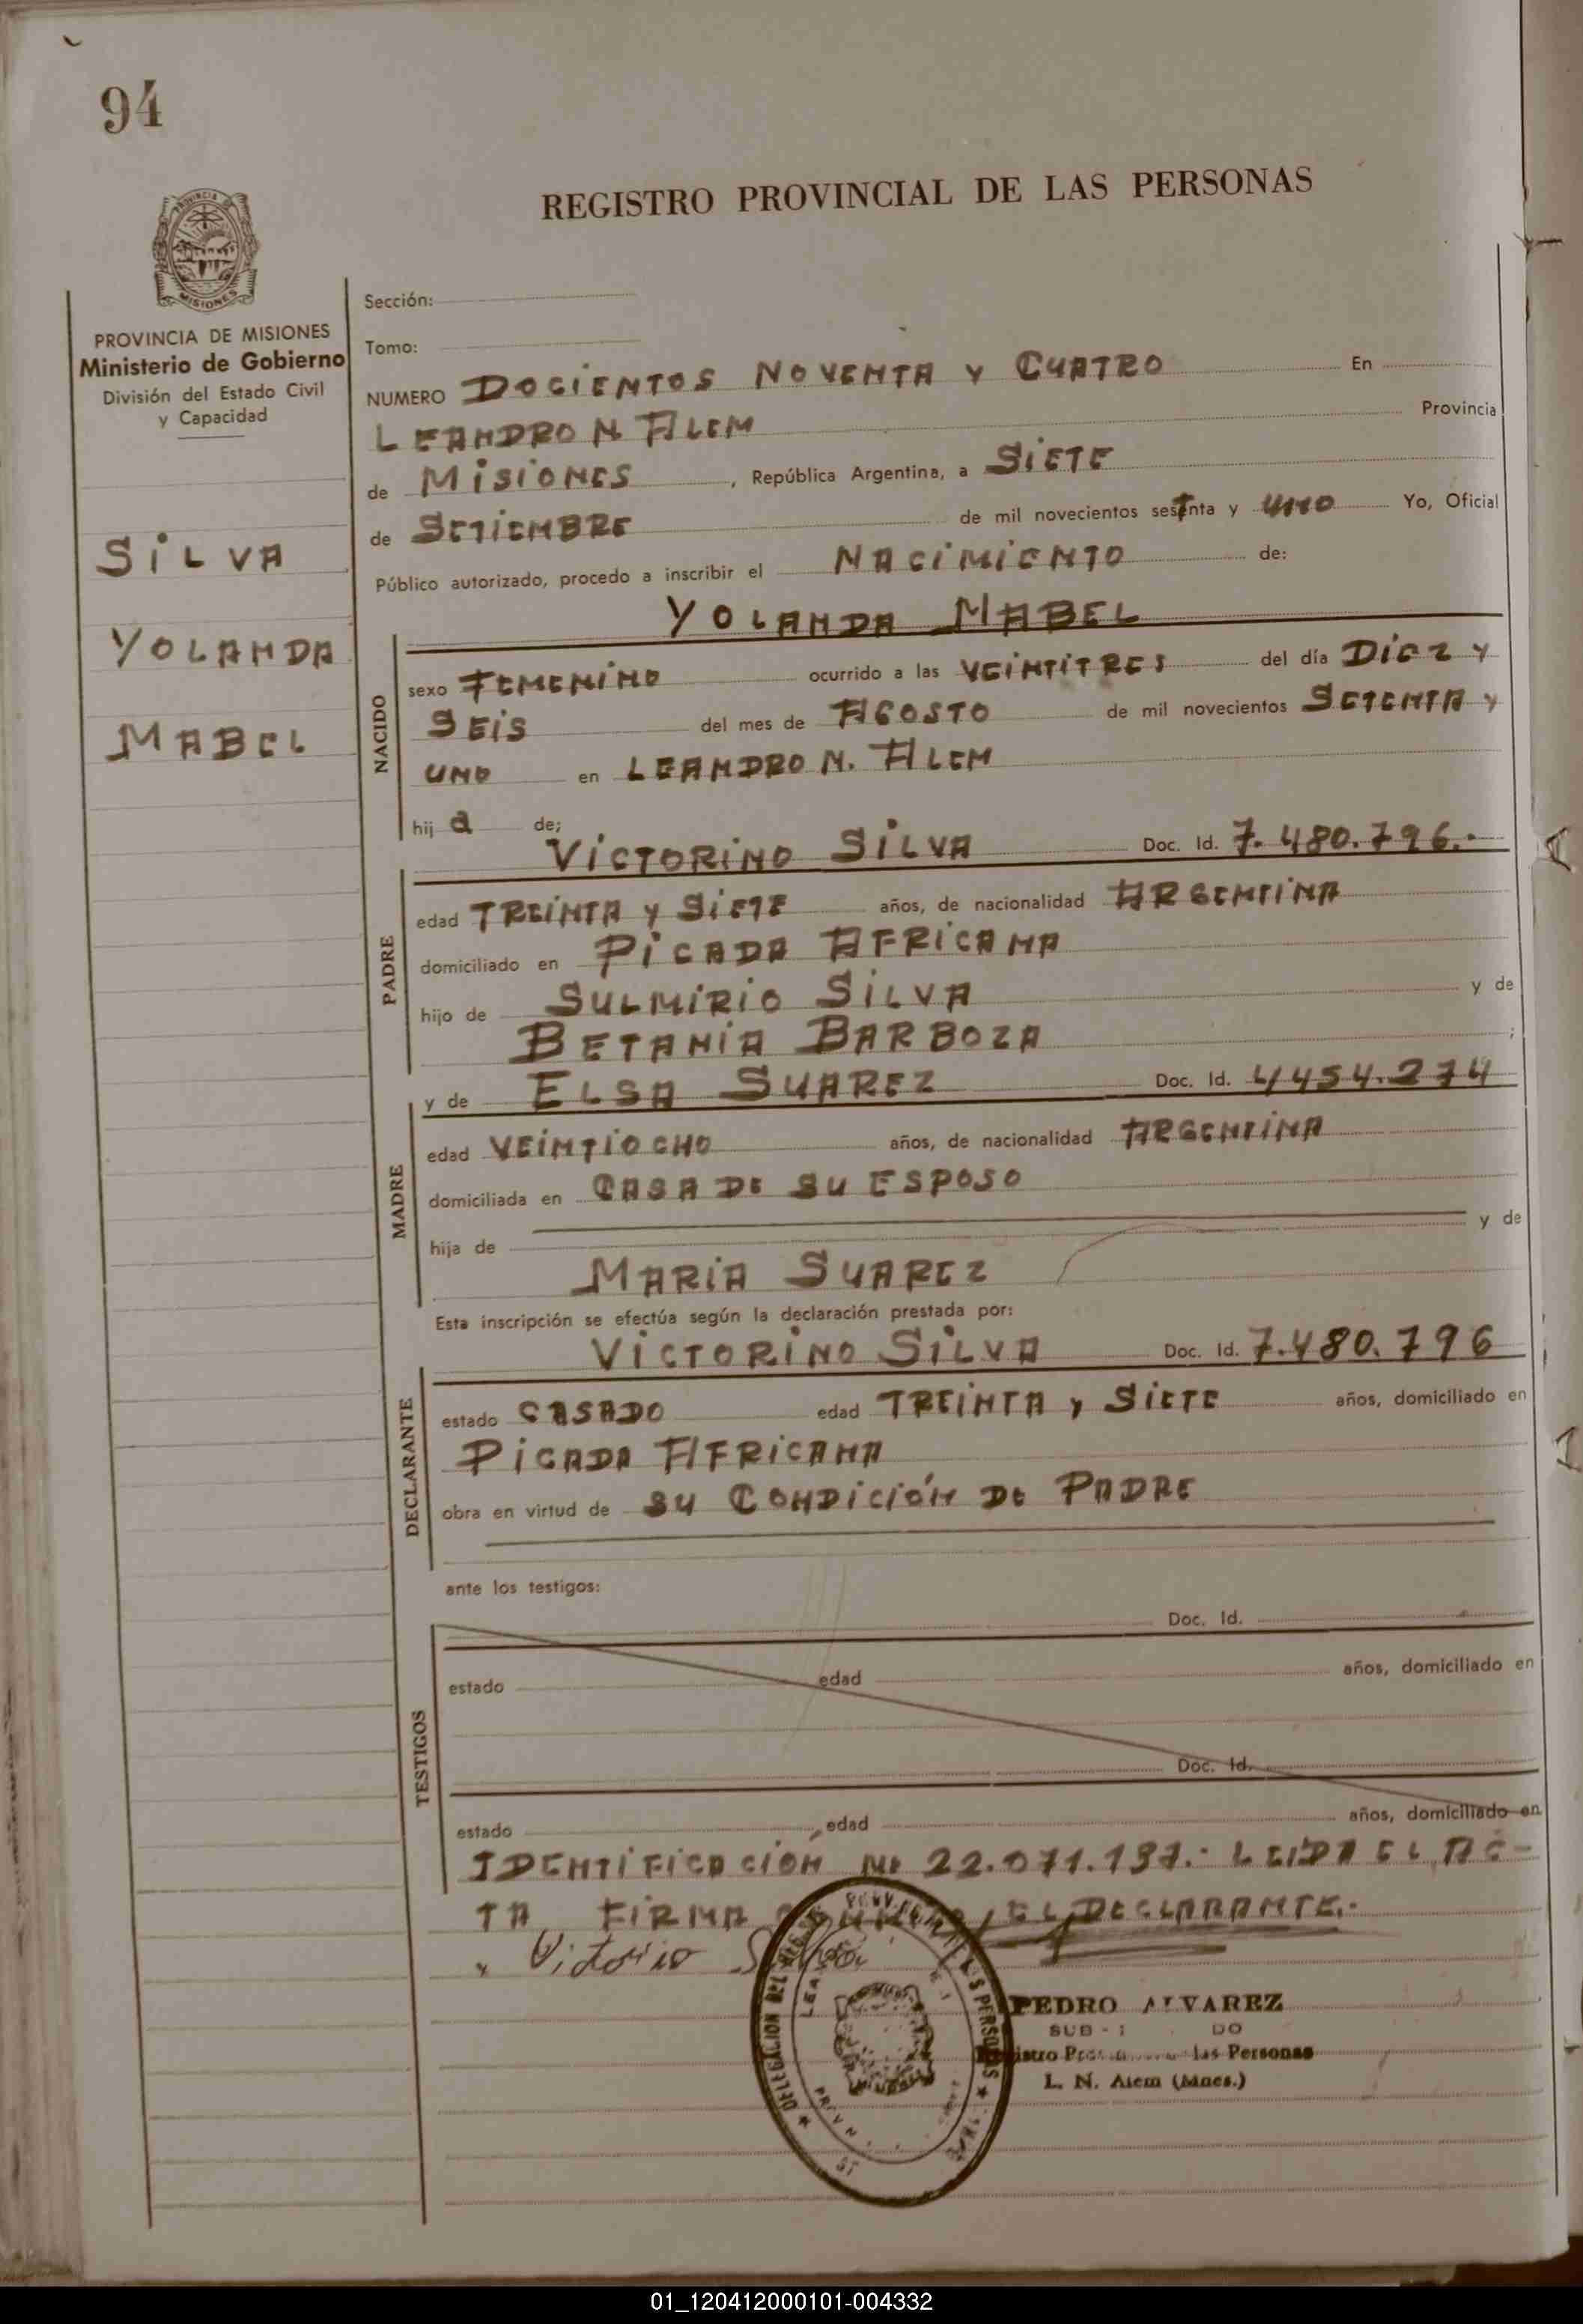 94
REGISTRO PROVINCIAL DE LAS PERSONAS
PROVINCIA DE MISIONES
MISIONES
PROVINCIA DE MISIONES
Ministerio de Gobierno
División del Estado Civil
y Capacidad
SILVA
YOLANDA
MABEL
Sección:
Tomo:
NUMERO DOCIENTOS NOVENTA Y CUATRO En
LEANDRO N. ALEM Provincia
de MISIONES, República Argentina, a SIETE
de SETIEMBRE de mil novecientos setenta y UNO Yo, Oficial
Público autorizado, procedo a inscribir el NACIMIENTO de:
YOLANDA MABEL
NACIDO
sexo FEMENINO ocurrido a las VEINTITRES del día DIEZ Y
SEIS del mes de AGOSTO de mil novecientos SETENTA Y
UNO en LEANDRO N. ALEM
hij a de;
VICTORINO SILVA Doc. Id. 7.480.796.-
PADRE
edad TREINTA Y SIETE años, de nacionalidad ARGENTINA
domiciliado en PICADA AFRICANA
hijo de SULMIRIO SILVA y de
BETANIA BARBOZA ;
y de ELSA SUAREZ Doc. Id. 4454.274
MADRE
edad VEINTIOCHO años, de nacionalidad ARGENTINA
domiciliada en CASA DE SU ESPOSO
hija de y de
MARIA SUAREZ
Esta inscripción se efectúa según la declaración prestada por:
VICTORINO SILVA Doc. Id. 7.480.796
DECLARANTE
estado CASADO edad TREINTA Y SIETE años, domiciliado en
PICADA AFRICANA
obra en virtud de SU CONDICIÓN DE PADRE
ante los testigos:
Doc. Id.
TESTIGOS
estado edad años, domiciliado en
Doc. Id.
estado edad años, domiciliado en
IDENTIFICACIÓN Nº 22.071.137.- LEIDA EL AC-
TA FIRMA EL DECLARANTE.-
Victorio Silva
DELEGACION DEL PERSONAS
PEDRO ALVAREZ
SUB - DO
las Personas
L. N. Alem (Mnes.)
01_120412000101-004332